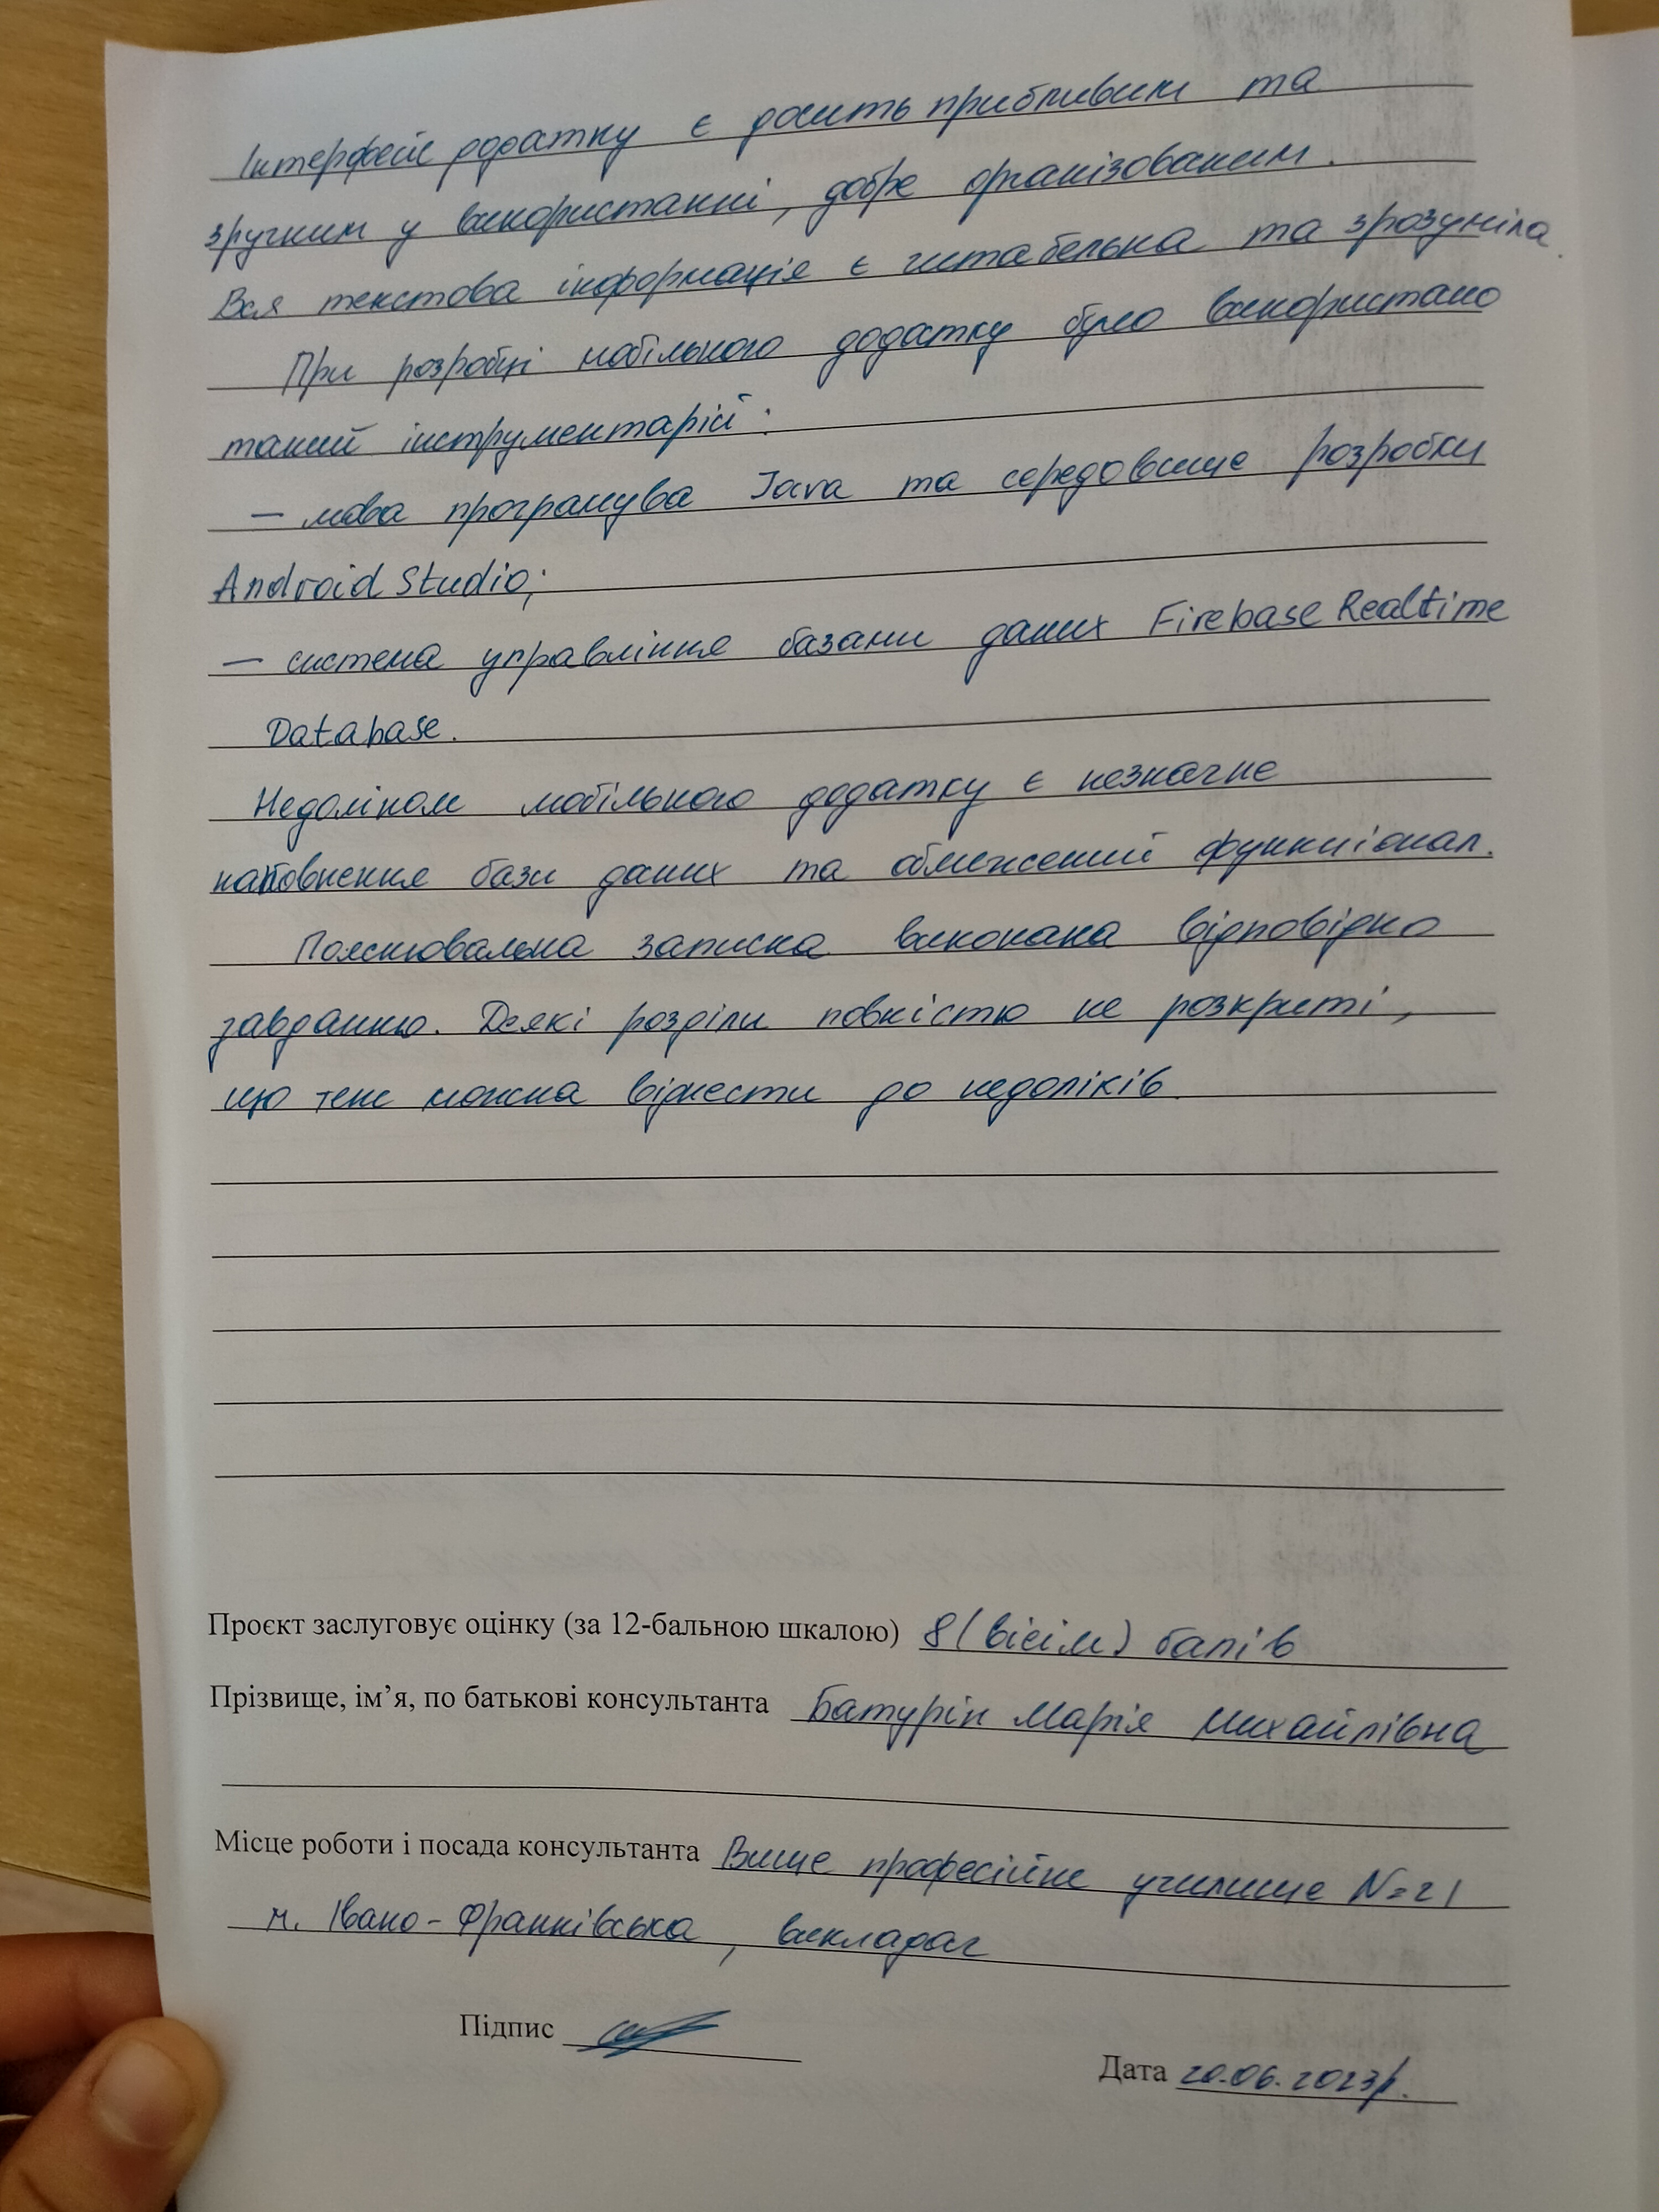 Інтерфейс додатку є досить прибливим та
зручним у використанні, добре організованим.
Вся текстова інформація є читабельна та зрозуміла.
При розробці мобільного додатку було використано
такий інструментарій:
— мова програмува Java та середовище розробки
Android Studio;
— система управління базами даних Firebase Realtime
Database.
Недоліком мобільного додатку є незначне
наповнення бази даних та обмежений функціонал.
Пояснювальна записка виконана відповідно
завданню. Деякі розділи повністю не розкриті,
що теж можна віднести до недоліків.
Проєкт заслуговує оцінку (за 12-бальною шкалою) 8 (вісім) балів
Прізвище, ім’я, по батькові консультанта Батурін Марія Михайлівна
Місце роботи і посада консультанта Вище професійне училище №21
м. Івано-Франківська, викладач
Підпис
Дата 20.06.2023р.